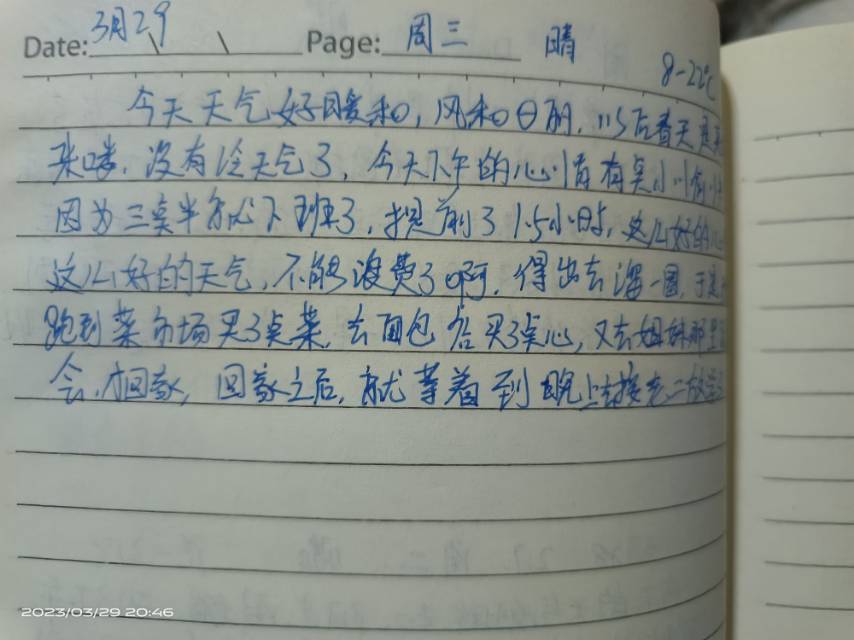 Date: 3月29 Page: 周三 晴
8-22℃
今天天气好暖和，风和日丽，以后看天是
来喽，没有冷天气了，今天下午的心情有点小
因为三点半就下班了，提前了1.5小时，这么好的
这么好的天气，不能浪费了啊，得出去溜一圈，于是
跑到菜市场买了点菜，去面包店买了点心，又去姐妹那里
会，才回家，回家之后，就等着到晚上去接老二放学
2023/03/29 20:46